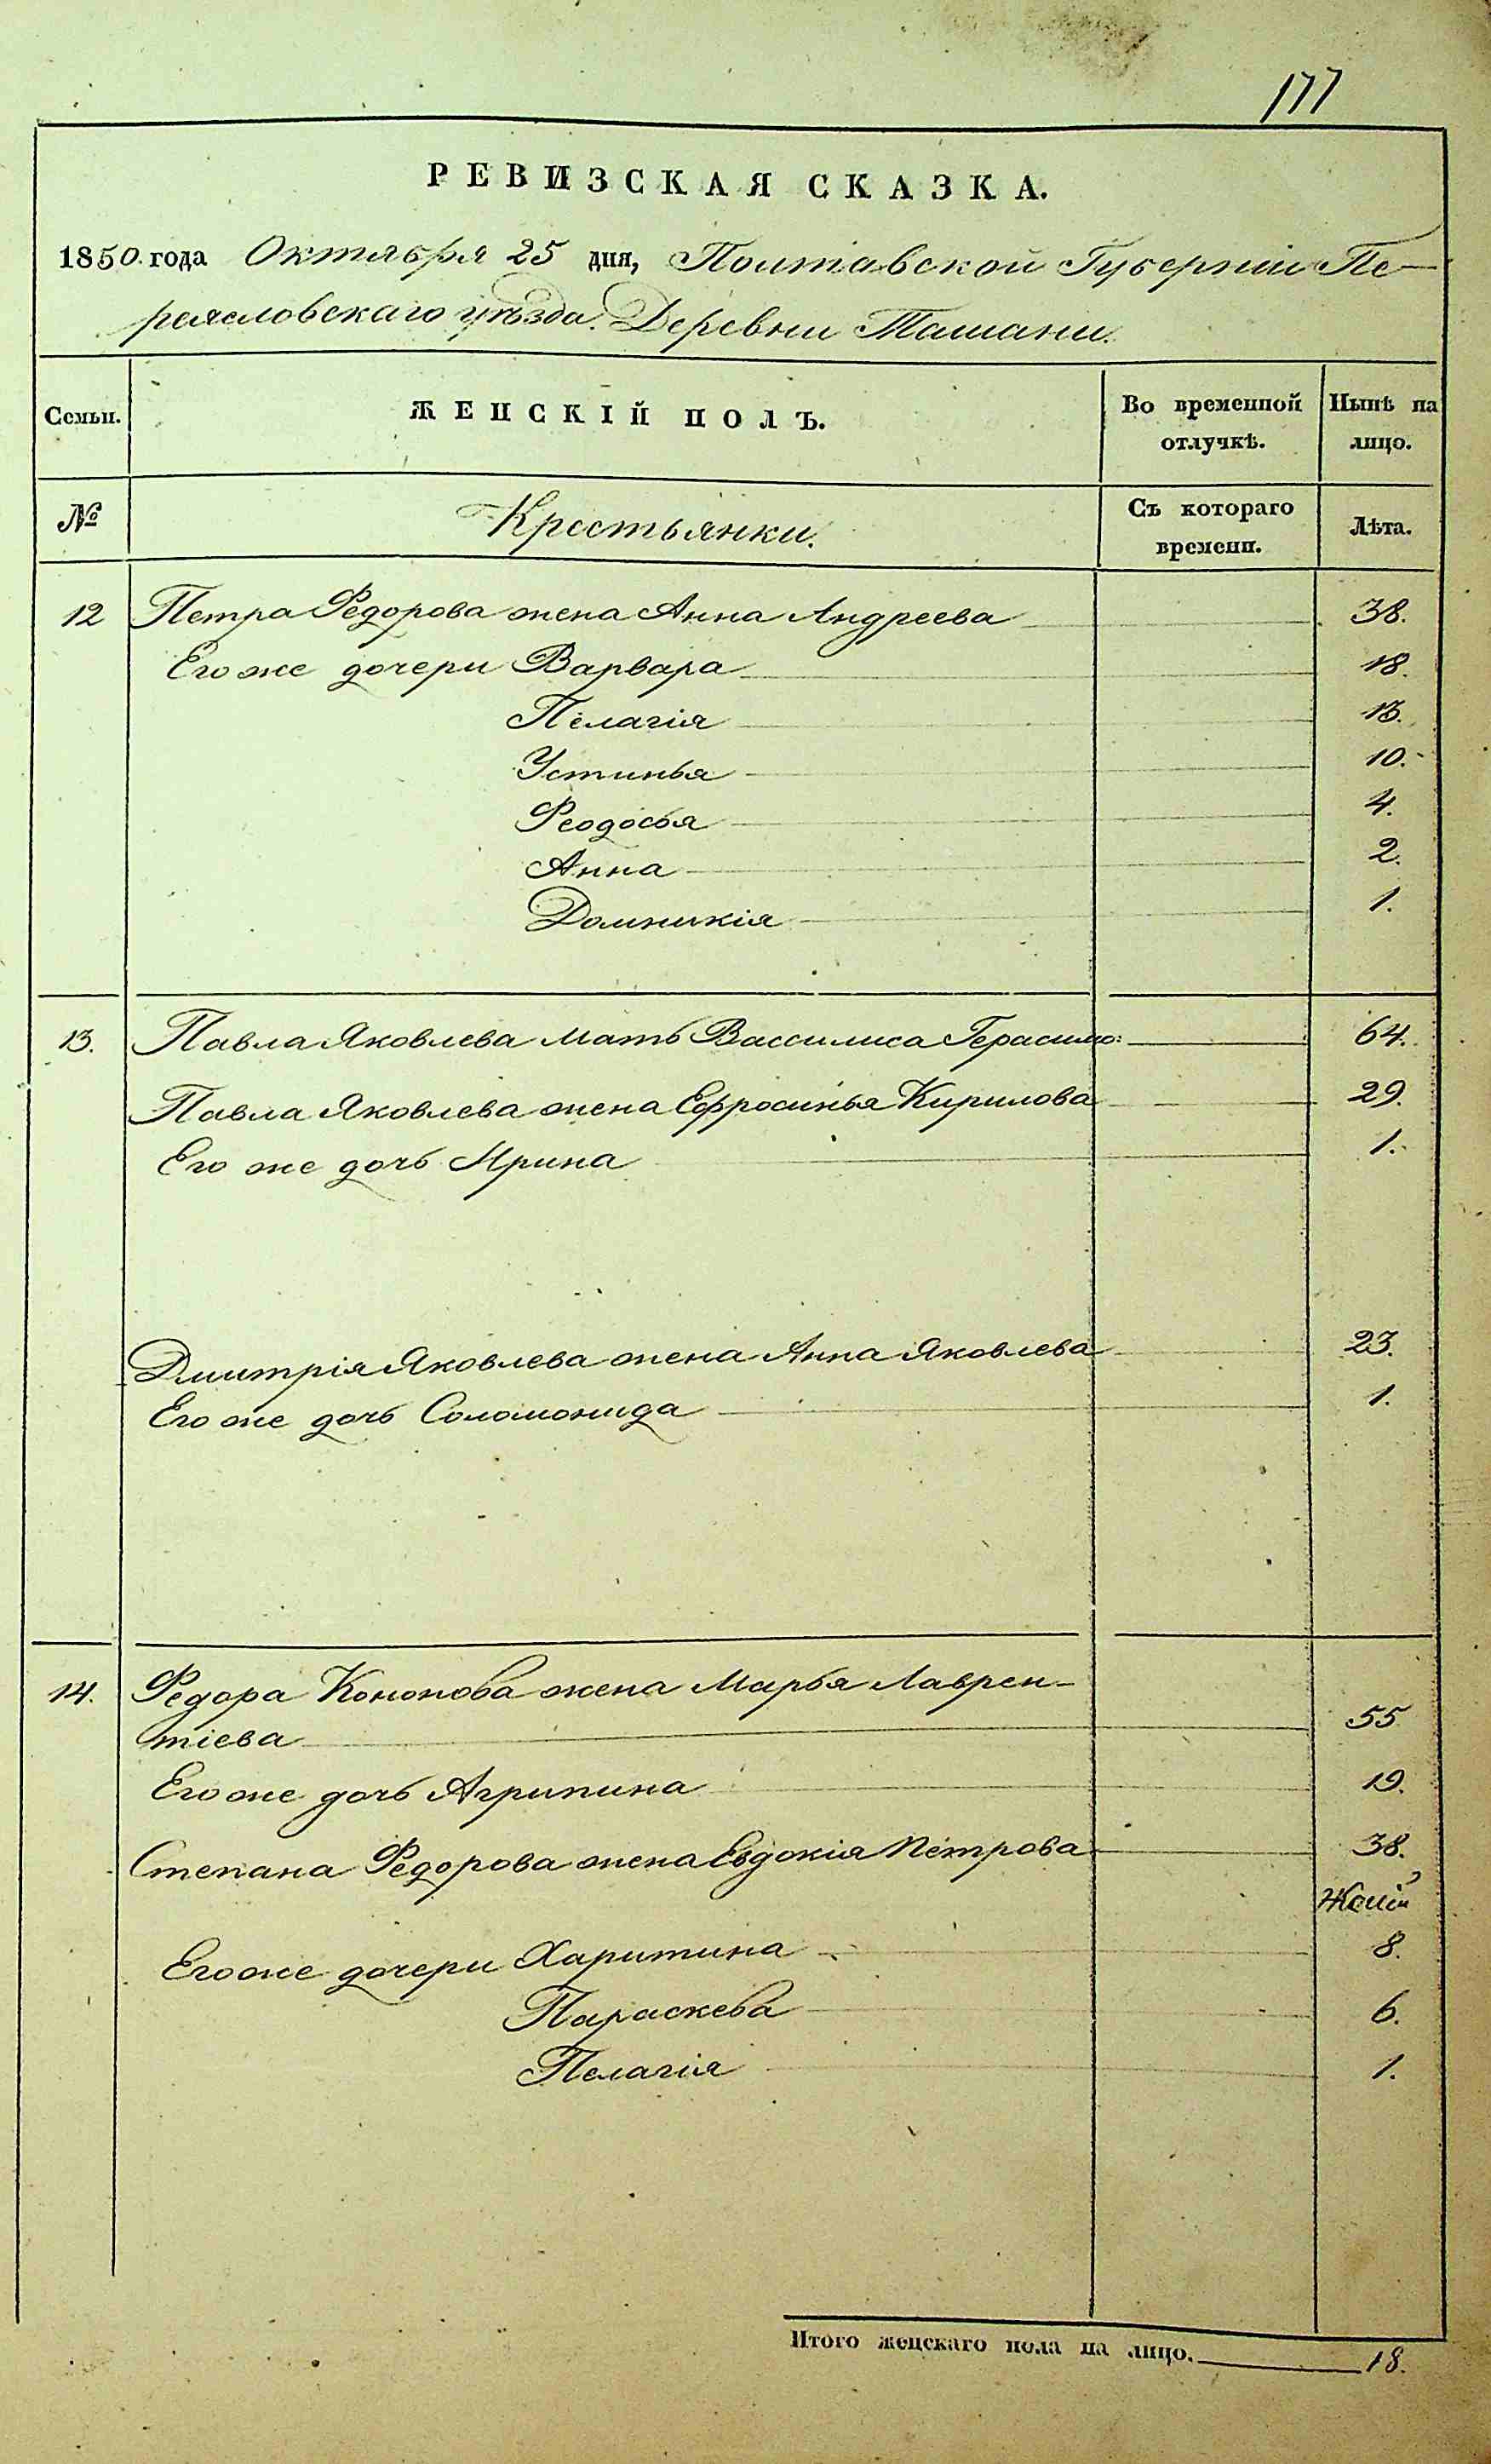 177
РЕВИЗСКАЯ СКАЗКА.
1850. года Октября 25 дня, Полтавской Губерніи Пе-
реясловскаго уѣзда. Деревни Ташани.
Семьи. ЖЕНСКІЙ ПОЛЪ. Во временной отлучкѣ. Нынѣ на лицо.
№ Крестьянки. Съ котораго времени. Лѣта.
12 Петра Федорова жена Анна Андреева 38.
Его же дочери Варвара 18.
Пелагія 13.
Устинья 10.
Феодосья 4.
Анна 2.
Домникія 1.
13. Павла Яковлева мать Вассилиса Герасимо: 64.
Павла Яковлева жена Ефросинья Кирилова 29.
Его же дочь Ирина 1.
Дмитрія Яковлева жена Анна Яковлева 23.
Его же дочь Соломонида 1.
14. Федора Кононова жена Марья Лаврен-
тіева 55
Его же дочь Агрипина 19.
Степана Федорова жена Евдокія Петрова 38.
Его же дочери Харитина 8.
Параскева 6.
Пелагія 1.
Итого женскаго пола на лицо. 18.